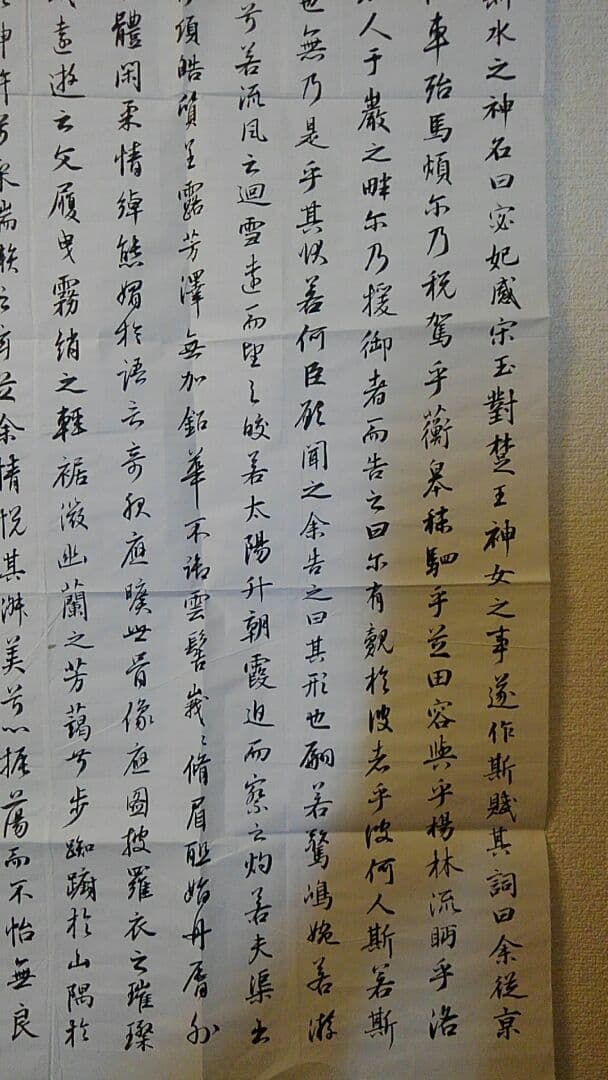 水之神名曰宓妃感宋玉對楚王神女之事遂作斯賦其詞曰余從京
車殆馬煩尔乃税駕乎蘅皋秣駟乎芝田容與乎楊林流眄乎洛
人于巖之畔尔乃援御者而告之曰尔有覿於彼者乎彼何人斯若斯
也無乃是乎其狀若何臣願聞之余告之曰其形也翩若驚鴻婉若游
兮若流風之迴雪遠而望之皎若太陽升朝霞迫而察之灼若夫渠出
項皓質呈露芳澤無加鉛華不御雲髻峩〻脩眉聯娟丹脣外
體閑柔情綽態媚於語言奇服應曠世骨像應圖披羅衣之璀璨
遠遊之文履曳霧綃之輕裾微幽蘭之芳藹兮步踟躕於山隅於
神滸兮采湍瀨之玄芝余情悅其淑美兮心振蕩而不怡無良